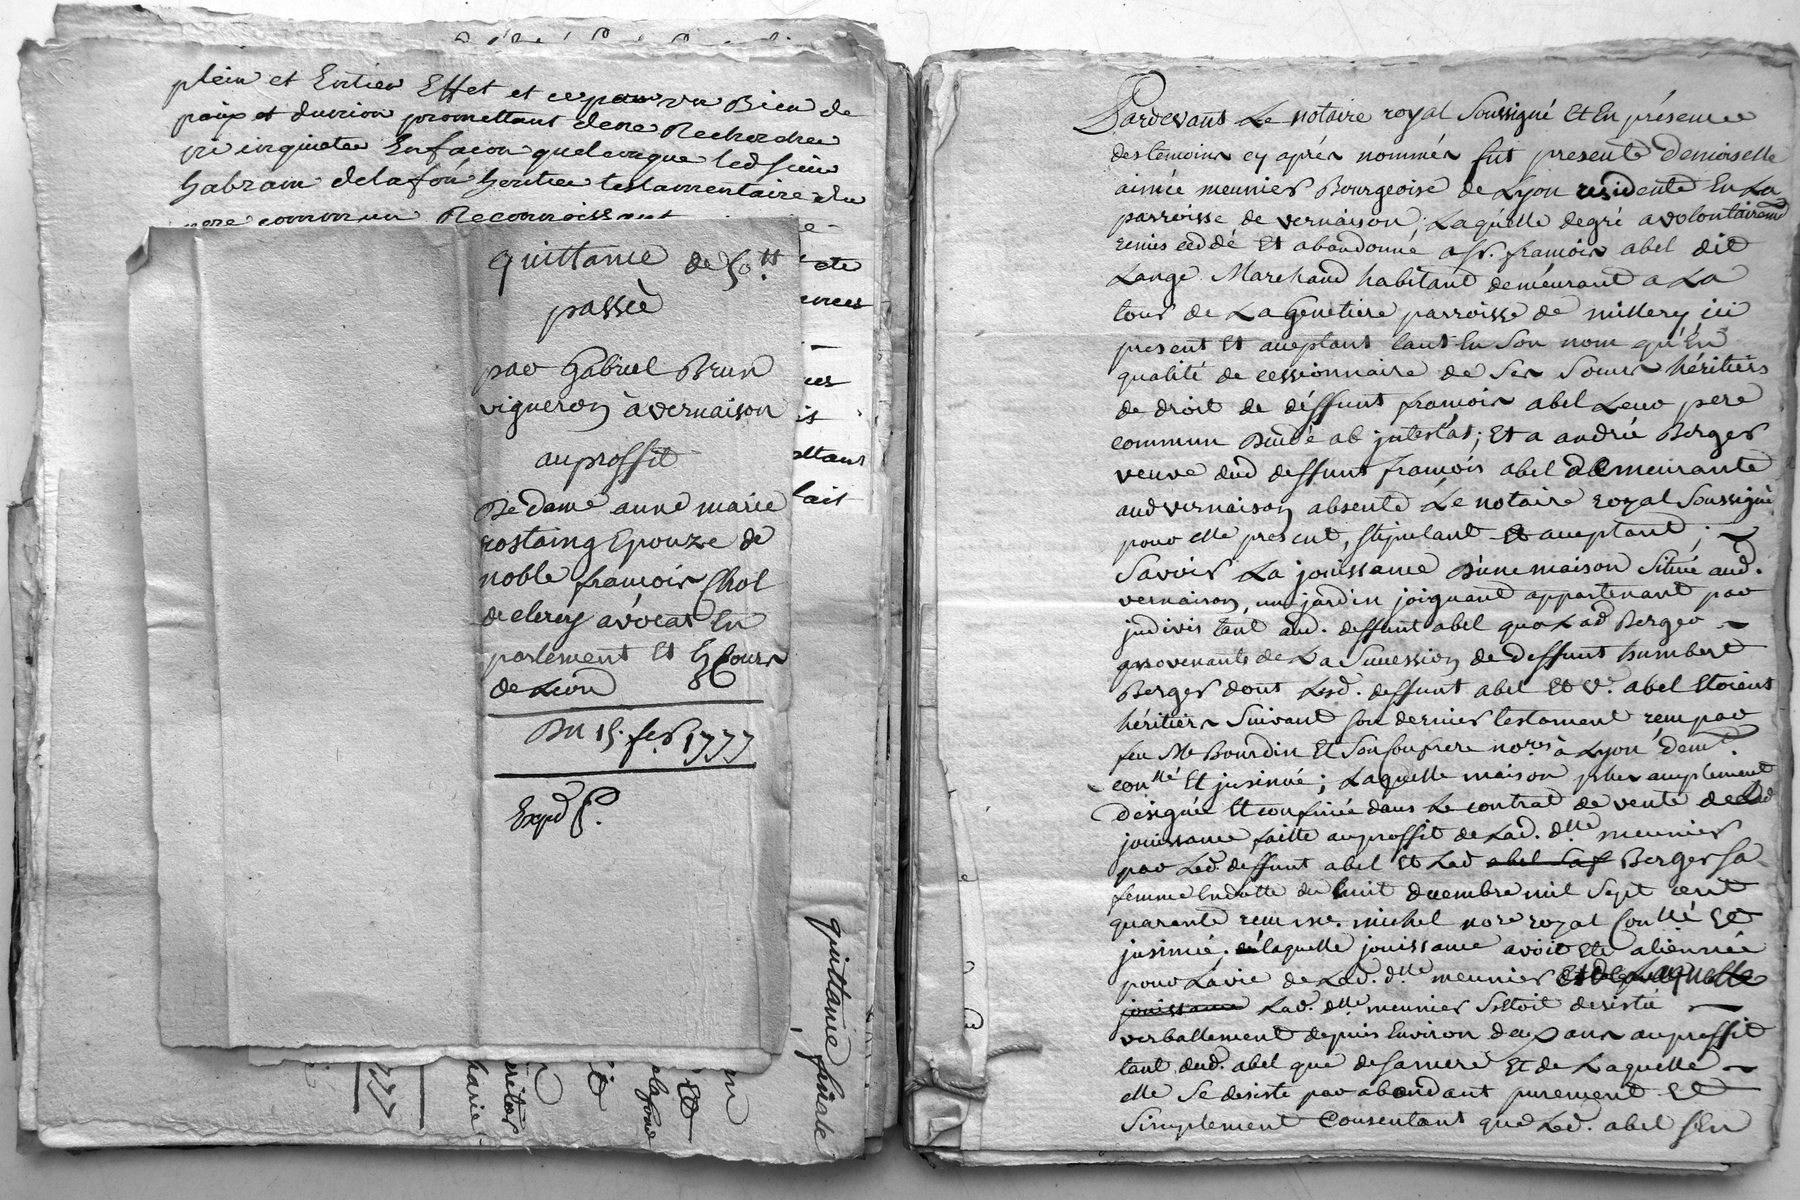 plein et Entier Effet et ce pour un Bien de
paix et dunion promettant de ne Rechercher
ni inquieter En façon quelconque led sieur
gabram delafon heritier testamentaire du
pere commun Reconnoissant
ete
ttant
lait
quittance de 50 tt
passé
par Gabriel Brun
vigneron à vernaison
au proffit
De dame anne marie
rostaing Epouze de
noble françois Chol
de clercy avocat En
parlement Et Es Cours
de Lion
Du 15. fer. 1777
Expd
quittance finale
1777
Pardevant Le notaire royal Soussigné Et En présence
des temoins cy aprés nommés fut presente demoiselle
aimée meunier Bourgeoise de Lyon residente En La
parroisse de vernaison; Laquelle de gré a volontairemt
remis ceddé Et abandonné a sr. françois abel dit
Lange Marchand habitant demeurant a La
tour de La Genetiere parroisse de millery ici
present Et acceptant tant En Son nom qu'En
qualité de cessionnaire de Ses Sœurs héritiers
de droit de déffunt françois abel Leur pere
commun décédé ab intestat; Et a andrée Berger
veuve dud deffunt françois abel demeurante
aud vernaison absente Le notaire royal Soussigné
pour elle present, stipulant Et acceptant;
Savoir La jouissance d'une maison Située aud.
vernaison, un jardin joignant appartenant par
indivis tant aud. deffunt abel qua Lad Berger
provenants de La Succession de deffunt humbert
Berger dont Lesd. deffunt abel Et ve. abel Etoient
héritiers Suivant Son dernier testament reçu par
feu Me Bourdin Et Son Confrere nores à Lyon demt.
conllé Et insinué; Laquelle maison plus amplement
Désignée Et confinée dans Le contrat de vente de Lad
jouissance faitte au proffit de Lad. dlle meunier
par Led. deffunt abel Et Lad abel Sa f Berger Sa
femme En datte du huit decembre mil Sept cent
quarante reçu me. michel nore royal Conllé Et
insinué; laquelle jouissance avoit Eté alienneé
pour La vie de Lad. dlle meunier Et de Laquelle
jouissance Lad. dlle meunier S'Etoit desisté
verballement depuis Environ deux ans au proffit
tant dud. abel que de Sa mere Et de Laquelle
elle Se desiste par abandant purement Et
Simplement Consentant que Led. abel S'En